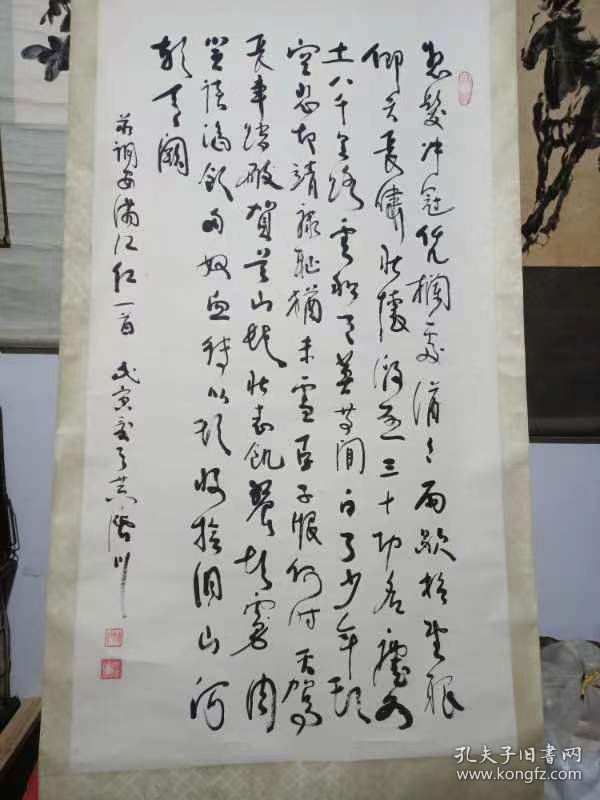 怒髮冲冠凭栏處潇潇雨歇抬望眼
仰天長啸壮懷激烈三十功名塵与
土八千里路雲和月莫等闲白了少年頭
空悲切靖康耻犹未雪臣子恨何时灭駕
長車踏破賀兰山缺壮志飢餐胡虏肉
笑談渴飲匈奴血待从頭收拾旧山河
朝天阙
前調寄满江红一首 戊寅
孔夫子旧书网
www.kongfz.com